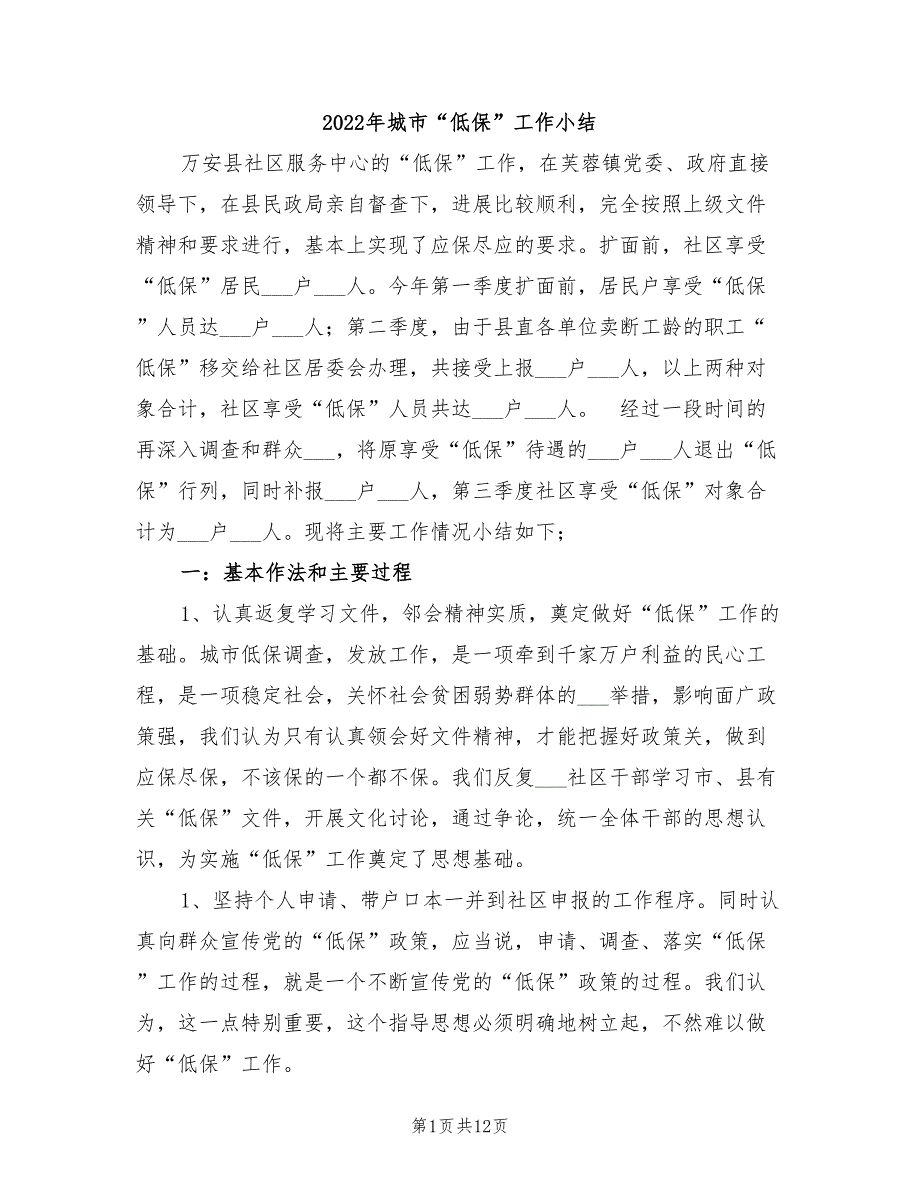 2022年城市“低保”工作小结
万安县社区服务中心的“低保”工作，在芙蓉镇党委、政府直接
领导下，在县民政局亲自督查下，进展比较顺利，完全按照上级文件
精神和要求进行，基本上实现了应保尽应的要求。扩面前，社区享受
“低保”居民___户___人。今年第一季度扩面前，居民户享受“低保
”人员达___户___人；第二季度，由于县直各单位卖断工龄的职工“
低保”移交给社区居委会办理，共接受上报___户___人，以上两种对
象合计，社区享受“低保”人员共达___户___人。　经过一段时间的
再深入调查和群众___，将原享受“低保”待遇的___户___人退出“低
保”行列，同时补报___户___人，第三季度社区享受“低保”对象合
计为___户___人。现将主要工作情况小结如下；
一：基本作法和主要过程
1、认真返复学习文件，邻会精神实质，奠定做好“低保”工作的
基础。城市低保调查，发放工作，是一项牵到千家万户利益的民心工
程，是一项稳定社会，关怀社会贫困弱势群体的___举措，影响面广政
策强，我们认为只有认真领会好文件精神，才能把握好政策关，做到
应保尽保，不该保的一个都不保。我们反复___社区干部学习市、县有
关“低保”文件，开展文化讨论，通过争论，统一全体干部的思想认
识，为实施“低保”工作奠定了思想基础。
1、坚持个人申请、带户口本一并到社区申报的工作程序。同时认
真向群众宣传党的“低保”政策，应当说，申请、调查、落实“低保
”工作的过程，就是一个不断宣传党的“低保”政策的过程。我们认
为，这一点特别重要，这个指导思想必须明确地树立起，不然难以做
好“低保”工作。
第1页共12页